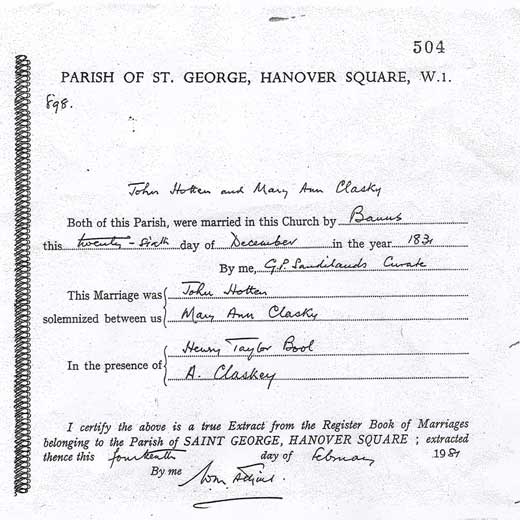 504
PARISH OF ST. GEORGE, HANOVER SQUARE, W.1.
898.
John Hotten and Mary Ann Clasky
Both of this Parish, were married in this Church by Banns
this twenty-sixth day of December in the year 1831
By me, G.P. Sandilands Curate
This Marriage was { John Hotten
solemnized between us { Mary Ann Clasky
In the presence of { Henry Taylor Bool
A. Claskey
I certify the above is a true Extract from the Register Book of Marriages
belonging to the Parish of SAINT GEORGE, HANOVER SQUARE ; extracted
thence this fourteenth day of February 1981
By me Wm.